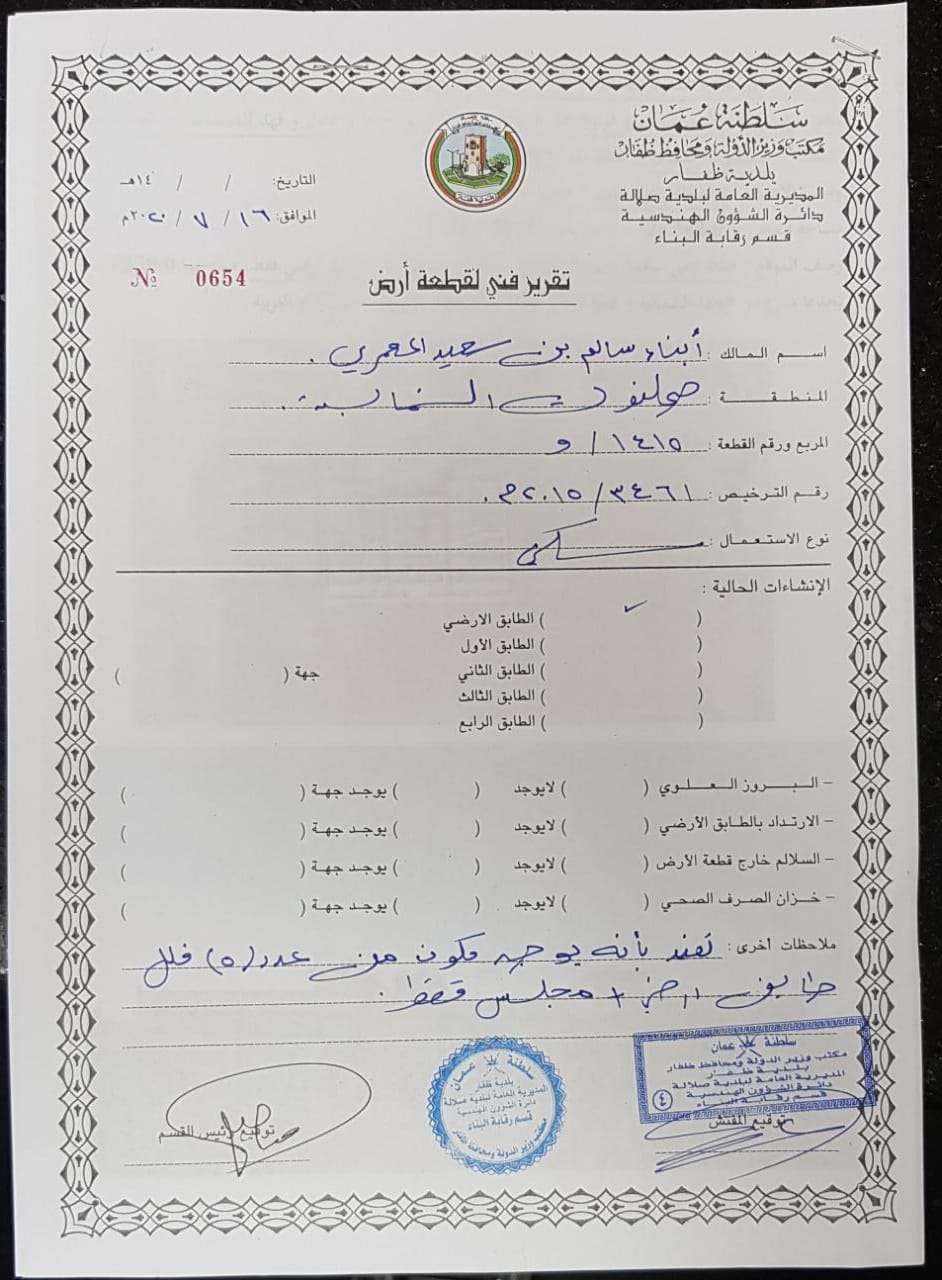 سلطنة عمان
مكتب وزير الدولة ومحافظ ظفار
بلدية ظفار
المديرية العامة لبلدية صلالة
دائرة الشؤون الهندسية
قسم رقابة البناء
التاريخ: / / ١٤هـ
الموافق: ١٦ / ٧ / ٢٠٢٠م
№ 0654
تقرير فني لقطعة أرض
اسم المالك : أبناء سالم بن سعيد المعمري .
المنطقة : صحلنوت الشمالية .
المربع ورقم القطعة : ١٤١٥ / و
رقم الترخيص : ٣٤٦١ / ٢٠١٥م .
نوع الاستعمال : سكني
الإنشاءات الحالية :
( ✓ ) الطابق الارضي
( ) الطابق الأول
( ) الطابق الثاني جهة ( )
( ) الطابق الثالث
( ) الطابق الرابع
- البروز العلوي ( ) لايوجد ( ) يوجد جهة ( )
- الارتداد بالطابق الأرضي ( ) لايوجد ( ) يوجد جهة ( )
- السلالم خارج قطعة الأرض ( ) لايوجد ( ) يوجد جهة ( )
- خزان الصرف الصحي ( ) لايوجد ( ) يوجد جهة ( )
ملاحظات أخرى : نفيد بأنه يوجد مكون من عدد (٥) فلل
طابق ارضي + مجلس فقط .
سلطنة عمان
مكتب وزير الدولة ومحافظ ظفار
بلدية ظفار
المديرية العامة لبلدية صلالة
دائرة الشؤون الهندسية
قسم رقابة البناء
٤
توقيع المفتش
سلطنة عمان
بلدية ظفار
المديرية العامة لبلدية صلالة
دائرة الشؤون الهندسية
قسم رقابة البناء
مكتب وزير الدولة ومحافظ ظفار
توقيع رئيس القسم